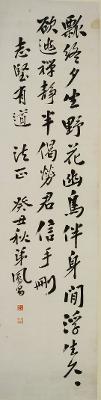 瓢終夕生野花幽鳥伴身間浮生久
欲逃禪靜半偈勞君信手刪
志堅有道 法正 癸丑秋弟